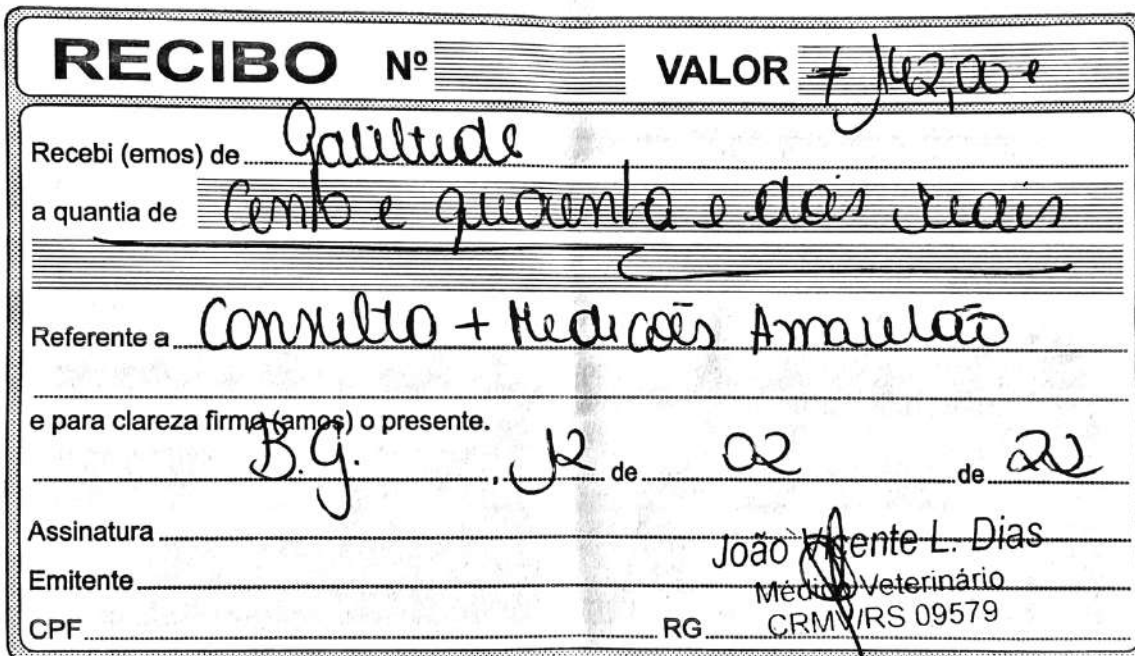 RECIBO Nº VALOR 142,00
Recebi (emos) de Gatitude
a quantia de Cento e quarenta e dois reais
Referente a Consulta + Medicões Amarelão
e para clareza firmo (amos) o presente.
B.G. , 12 de 02 de 22
Assinatura
João Vicente L. Dias
Emitente
Médico Veterinário
CPF RG CRMV/RS 09579